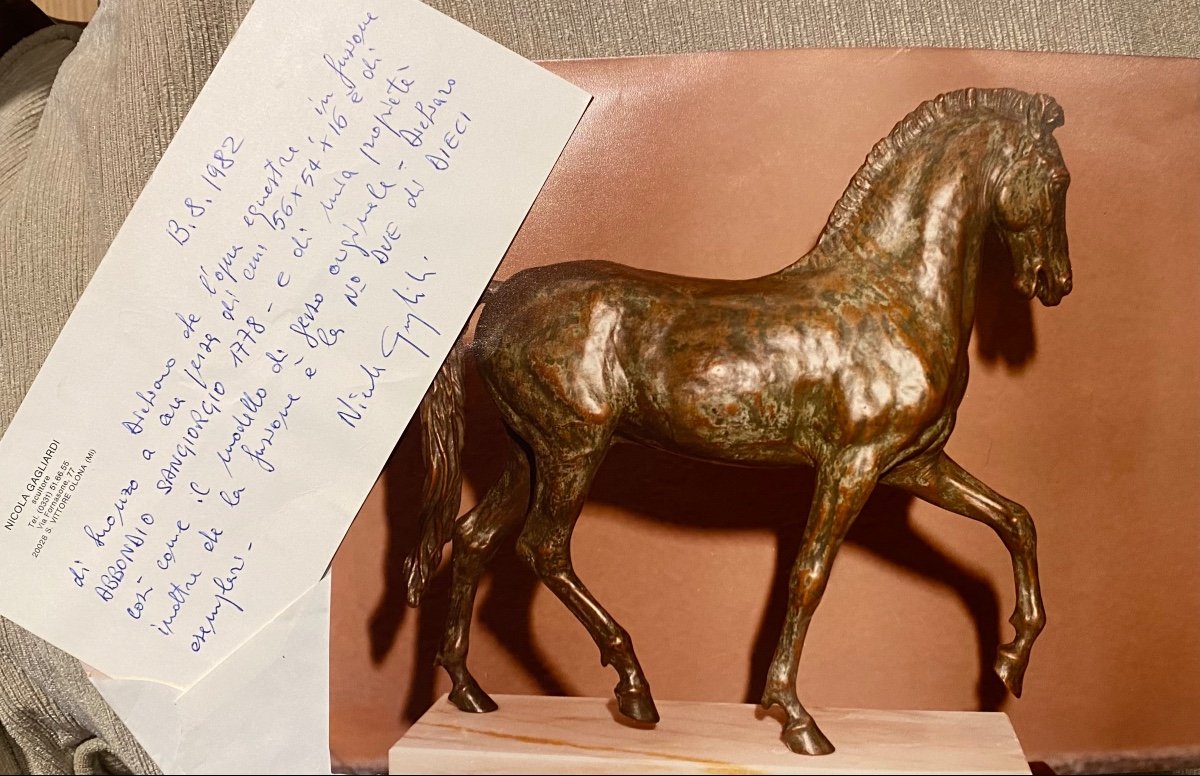 NICOLA GAGLIARDI
scultore
Tel. (0331) 51.66.55
Via Fornasone, 77
20028 S. VITTORE OLONA (MI)
B.8.1982
Dichiaro che l'opera equestre, in fusione
di bronzo a cera persa di cm 56x54x16 è di
ABBONDIO SANGIORGIO 1778- e di mia proprietà
così come il modello di gesso originale - Dichiaro
inoltre che la fusione è la N° DUE di DIECI
esemplari-
Nicola Gagliardi